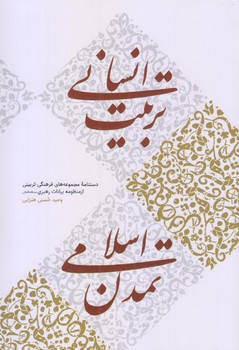 تربیت انسانی
دستنامهٔ مجموعه‌های فرهنگی تربیتی
از منظومه بیانات رهبری
وحید حسنی هنزایی
تمدن اسلامی